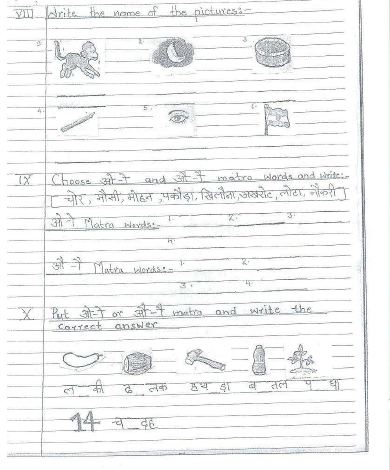 VIII Write the name of the pictures:-
1. 2. 3.
4. 5. 6.
IX Choose ओ-ो and औ-ौ matra words and write:-
[ चोर, मौसी, मोहन, पकौड़ा, खिलौना, अखरोट, लोटा, नौकरी ]
ओ-ो Matra words:- 1. 2. 3.
4.
औ-ौ Matra words:- 1. 2.
3. 4.
X Put ओ-ो or औ-ौ matra and write the
correct answer
ल_की ढ_लक हथ_ड़ा ब_तल प_धा
14 च_दह